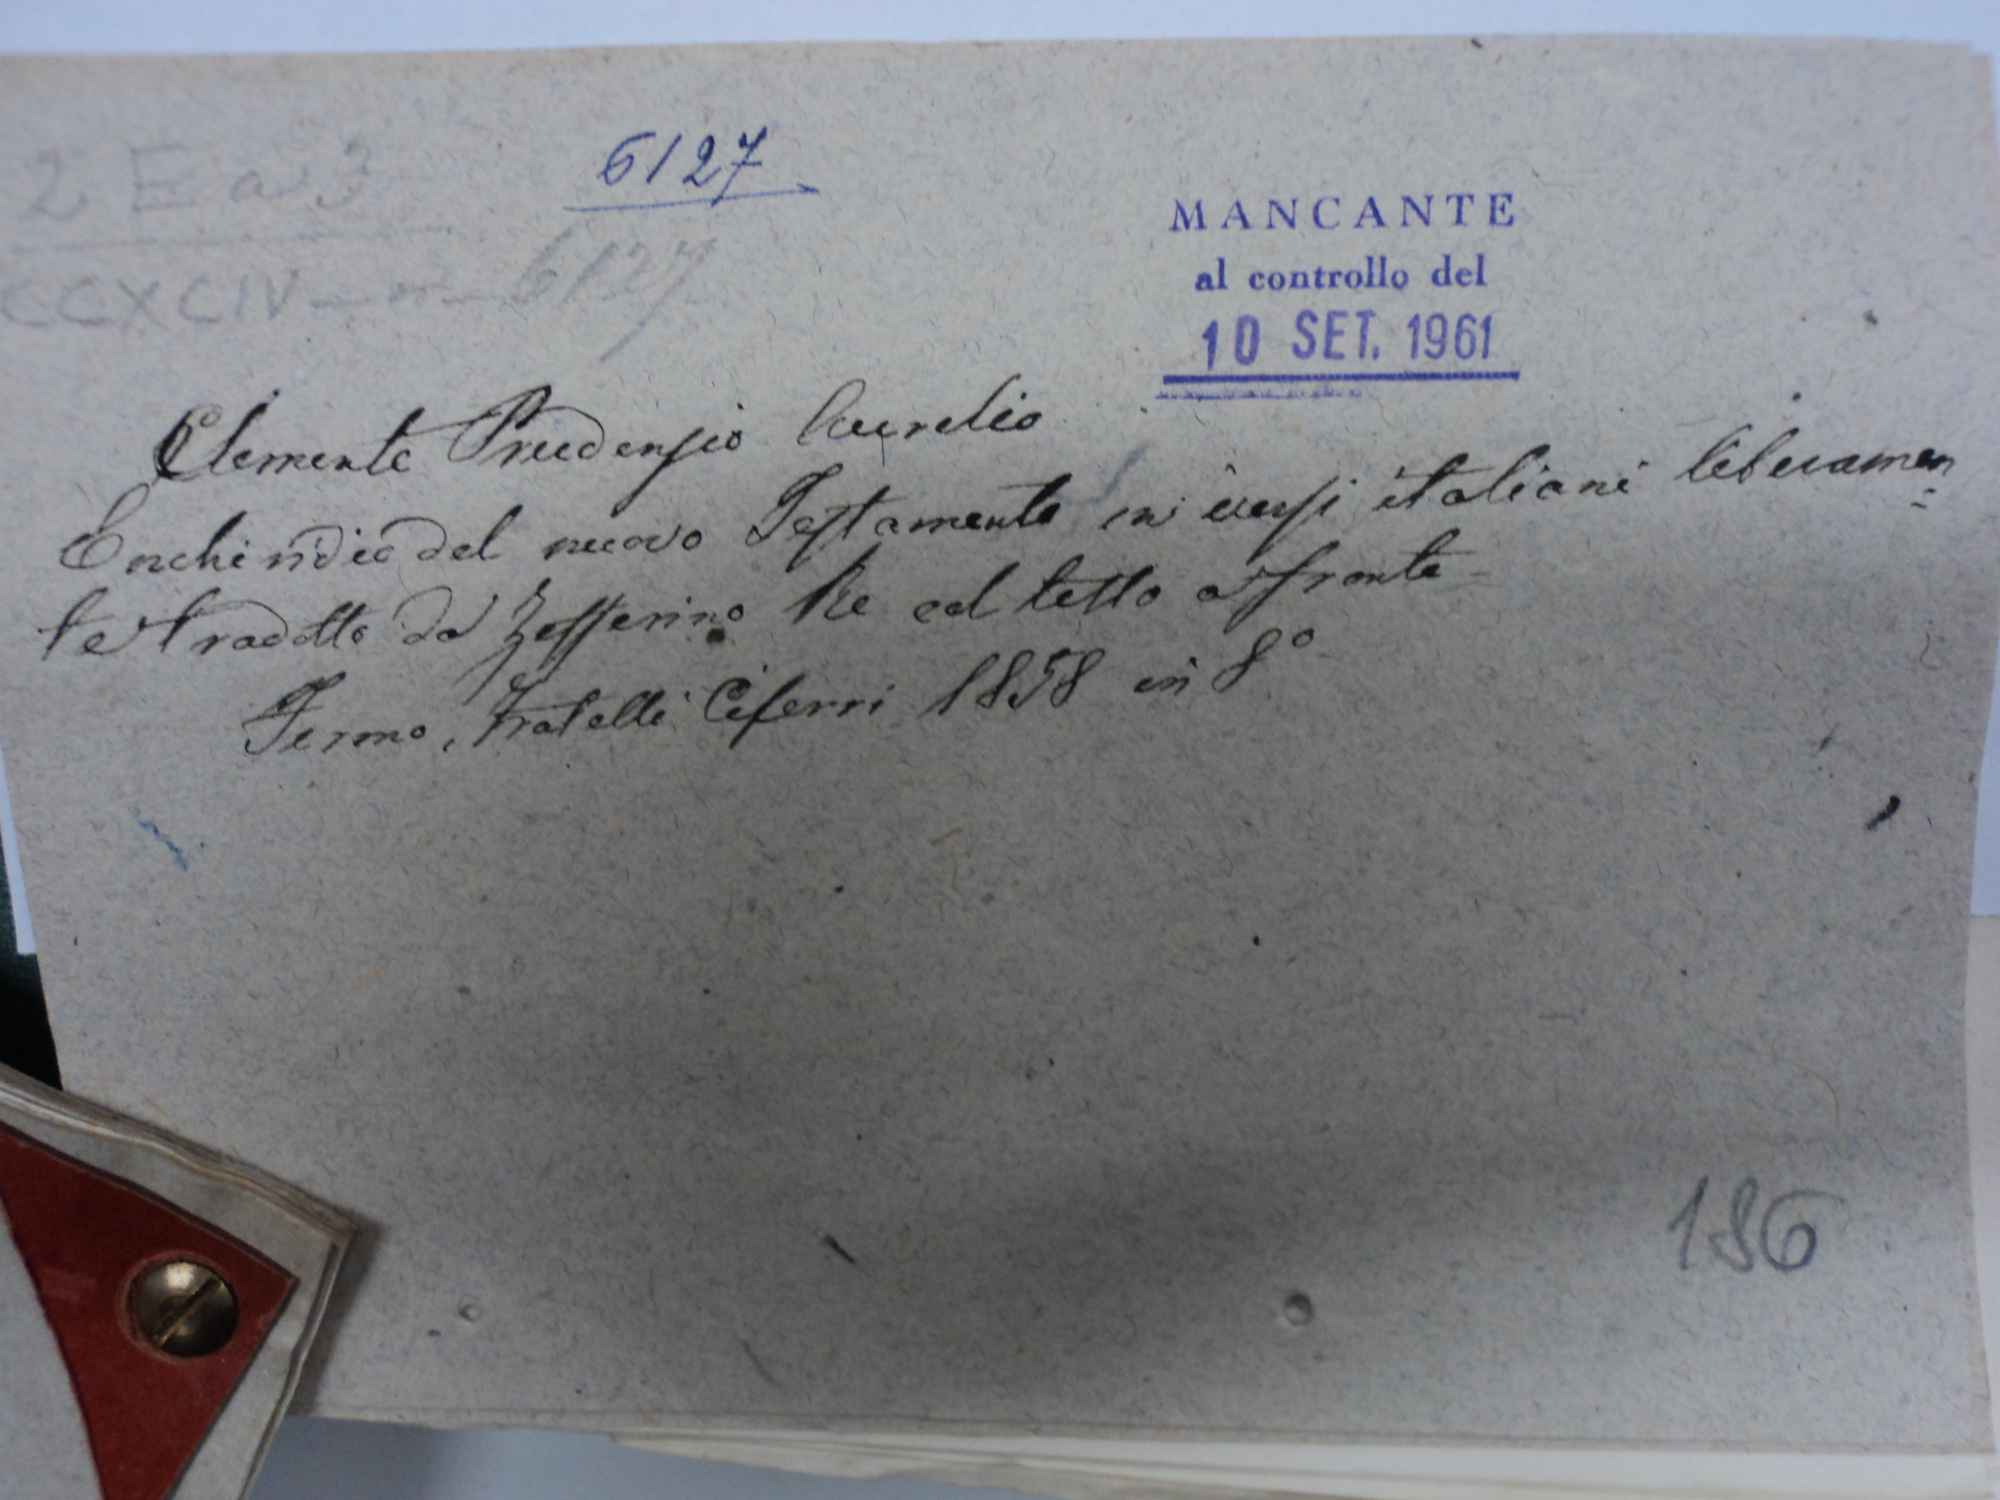 2 E a 3
6127
CCXCIV - n - 6127
MANCANTE
al controllo del
10 SET. 1961
Clemente Prudenzio Aurelio
Enchiridio del nuovo Testamento in versi italiani liberamen=
te tradotto da Zefferino Re col testo a fronte
Fermo, Fratelli Ciferri 1858 in 8°
186